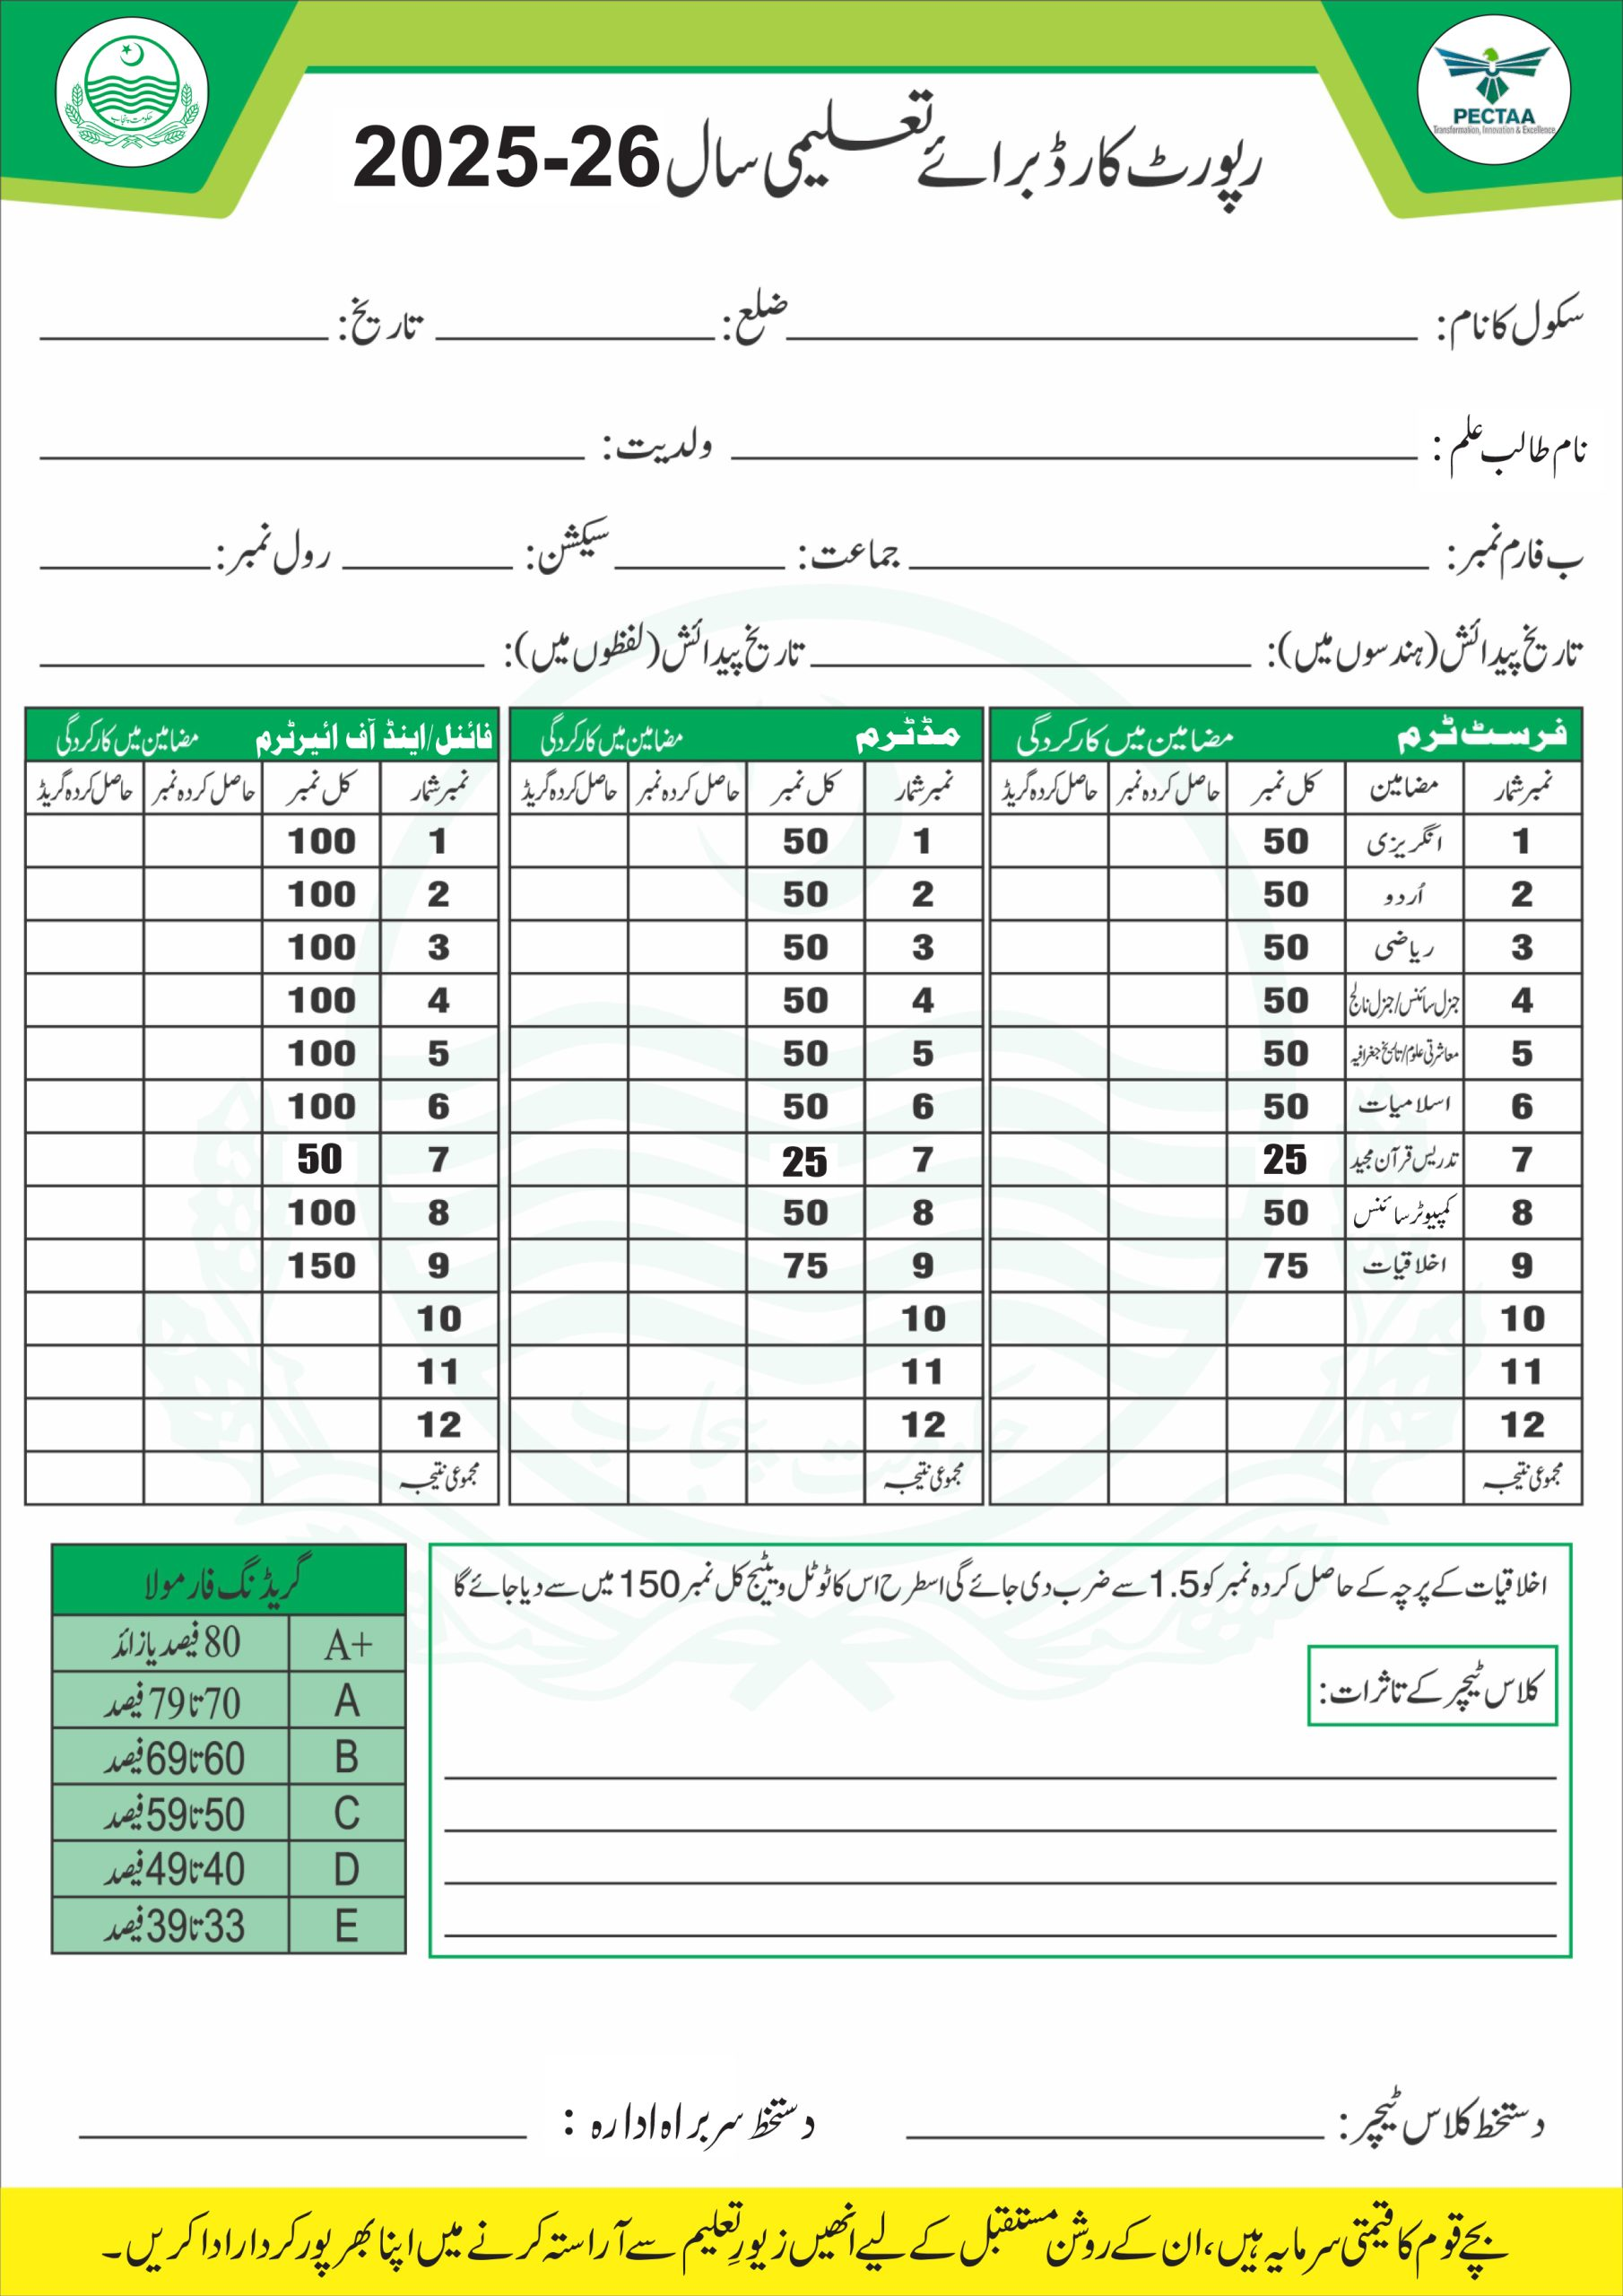 حکومت پنجاب
PECTAA
Transformation, Innovation & Excellence
رپورٹ کارڈ برائے تعلیمی سال 2025-26
سکول کا نام: ضلع: تاریخ:
نام طالب علم: ولدیت:
ب فارم نمبر: جماعت: سیکشن: رول نمبر:
تاریخ پیدائش (ہندسوں میں): تاریخ پیدائش (لفظوں میں):
فرسٹ ٹرم مضامین میں کارکردگی مڈٹرم مضامین میں کارکردگی فائنل/اینڈ آف ائیرٹرم مضامین میں کارکردگی
نمبر شمار مضامین کل نمبر حاصل کردہ نمبر حاصل کردہ گریڈ نمبر شمار کل نمبر حاصل کردہ نمبر حاصل کردہ گریڈ نمبر شمار کل نمبر حاصل کردہ نمبر حاصل کردہ گریڈ
1 انگریزی 50 1 50 1 100
2 اُردو 50 2 50 2 100
3 ریاضی 50 3 50 3 100
4 جنرل سائنس/جنرل نالج 50 4 50 4 100
5 معاشرتی علوم/تاریخ جغرافیہ 50 5 50 5 100
6 اسلامیات 50 6 50 6 100
7 تدریس قرآن مجید 25 7 25 7 50
8 کمپیوٹر سائنس 50 8 50 8 100
9 اخلاقیات 75 9 75 9 150
10 10 10
11 11 11
12 12 12
مجموعی نتیجہ مجموعی نتیجہ مجموعی نتیجہ
اخلاقیات کے پرچہ کے حاصل کردہ نمبر کو 1.5 سے ضرب دی جائے گی اسطرح اس کا ٹوٹل ویٹیج کل نمبر 150 میں سے دیا جائے گا
کلاس ٹیچر کے تاثرات:
گریڈنگ فارمولا
A+ 80 فیصد یا زائد
A 70 تا 79 فیصد
B 60 تا 69 فیصد
C 50 تا 59 فیصد
D 40 تا 49 فیصد
E 33 تا 39 فیصد
دستخط کلاس ٹیچر: دستخط سربراہ ادارہ:
بچے قوم کا قیمتی سرمایہ ہیں، ان کے روشن مستقبل کے لیے انھیں زیورِ تعلیم سے آراستہ کرنے میں اپنا بھرپور کردار ادا کریں۔